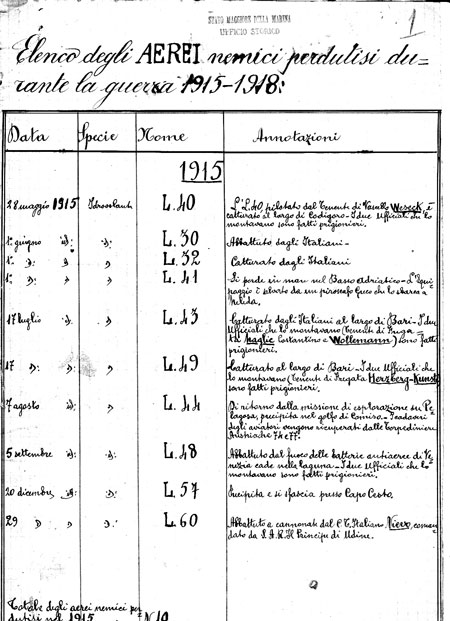 STATO MAGGIORE DELLA MARINA
UFFICIO STORICO
1
Elenco degli AEREI nemici perdutisi du=
rante la guerra 1915-1918:
Data Specie Nome Annotazioni
1915
28 maggio 1915 Idrovolante L.40 L'L.40, pilotato dal Tenente di Vascello Weseck, è
catturato al largo di Codigoro - I due Ufficiali che lo
montavano sono fatti prigionieri.
1° giugno d: d: L.30 Abbattuto dagli Italiani -
1° d: d: L.32 Catturato dagli Italiani
1° d: d: L.41 Si perde in mare nel Basso Adriatico - L'Equi
paggio è salvato da un piroscafo Greco che lo sbarca a
Melida.
17 luglio d: L.43 Catturato dagli Italiani al largo di Bari - I due
Ufficiali che lo montavano (Tenenti di Frega-
ta Maglic Costantino e Wollemann) sono fatti
prigionieri.
17 d: d: L.49 Catturato al largo di Bari - I due Ufficiali che
lo montavano (Tenenti di Fregata Herzberg - Kunst)
sono fatti prigionieri.
7 agosto d: L.44 Di ritorno dalla missione di esplorazione su Pe
lagosa, precipita nel golfo di Comisa -
degli aviatori vengono ricuperati dalle Torpediniere
Austriache 74 e 77.
5 settembre d: L.48 Abbattuto dal fuoco delle batterie antiaeree di Ve
nezia cade nella laguna - I due Ufficiali che lo
montavano sono fatti prigionieri.
20 dicembre d: L.57 Precipita e si sfascia presso Capo Cesto.
29 d d: L.60 Abbattuto a cannonate dal C.T. Italiano Nievo, coman
dato da S.A.R. Il Principe di Udine.
Totale degli aerei nemici per
dutisi nel 1915 N° 10